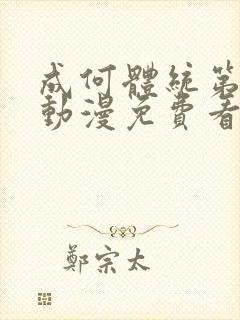 成何體統第
動漫免費看
鄭宗太